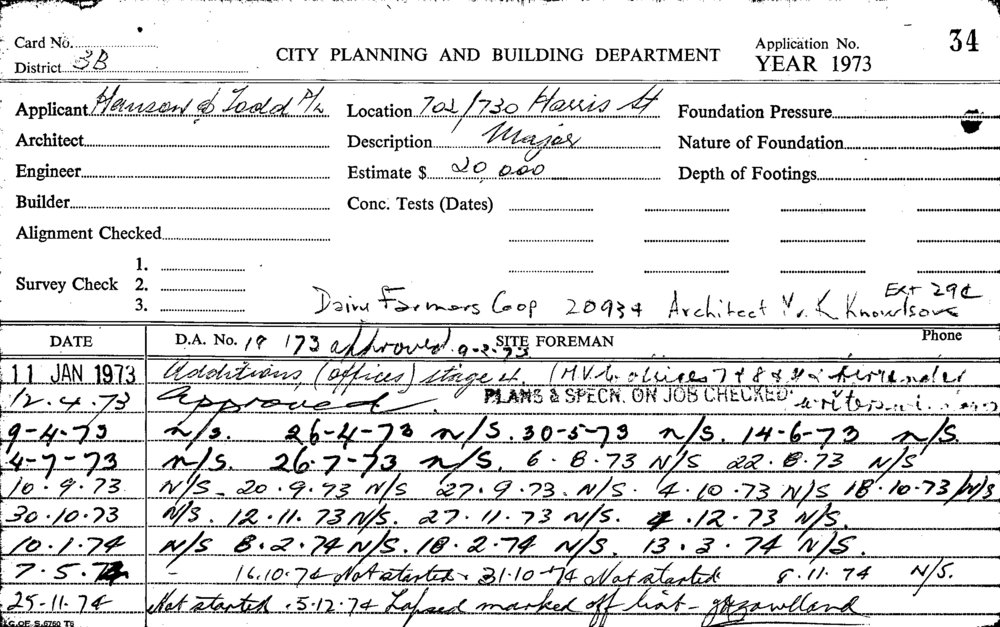 Card No. 34
District 3B CITY PLANNING AND BUILDING DEPARTMENT Application No. YEAR 1973
Applicant Hanson & Todd P/L Location 702/730 Harris St Foundation Pressure
Architect Description Major Nature of Foundation
Engineer Estimate $ 20,000 Depth of Footings
Builder Conc. Tests (Dates)
Alignment Checked
1.
Survey Check 2.
3.
Ext 29c
Farmers Coop 20934 Architect Mr. K Knowlson
DATE D.A. No. 173 approved 9-2-73 SITE FOREMAN Phone
11 JAN 1973 Additions, (offices) stage 4. (M.V.B. offices 7 & 8
12.4.73 Approved. PLANS & SPECN. ON JOB CHECKED.
9-4-73 N/S. 26-4-73 N/S. 30-5-73 N/S. 14-6-73 N/S.
4-7-73 N/S. 26.7-73 N/S. 6.8.73 N/S 22.8.73 N/S
10.9.73 N/S - 20.9.73 N/S 27.9.73. N/S. 4.10.73 N/S 18.10.73 N/S
30.10.73 N/S. 12.11.73 N/S. 27.11.73 N/S. 4.12.73 N/S.
10.1.74 N/S 8.2.74 N/S. 18.2.74 N/S. 13.3.74 N/S.
7.5.74 - 16.10.74 Not started. 31.10-74 Not started 8.11.74 N/S.
25-11.74 Not started. 5.12.74 Lapsed marked off list -
C. OF S. 6760 TS